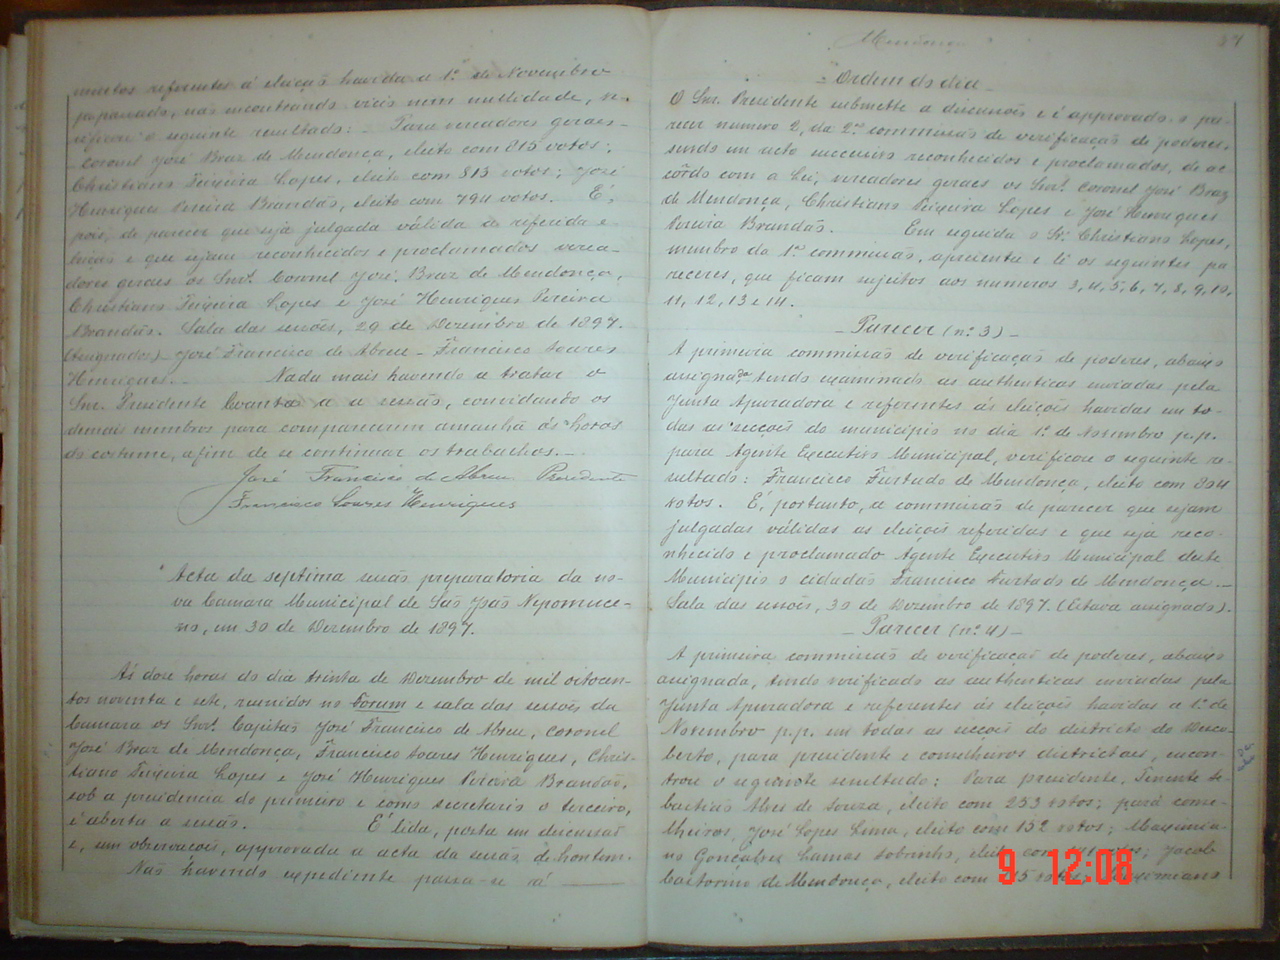 mentos referentes á eleição havida a 1º de Novembro
p. passado, nas encontrando vicio nem nullidade, ve-
rificou o seguinte resultado: - Para vereadores geraes -
Coronel José Braz de Mendonça, eleito com 815 votos;
Christiano Teixeira Lopes, eleito com 813 votos; José
Henriques Pereira Brandão, eleito com 794 votos. É,
pois, de parecer que seja julgada válida a referida e-
leição e que sejam reconhecidos e proclamados verea-
dores geraes os Snrs. Coronel José Braz de Mendonça,
Christiano Teixeira Lopes e José Henriques Pereira
Brandão. Sala das sessões, 29 de Dezembro de 1897.
(Assignados) - José Francisco de Abreu - Francisco Soares
Henriques. - Nada mais havendo a tratar o
Snr. Presidente levanta a sessão, convidando os
demais membros para comparecerem amanhã ás horas
do costume, afim de se continuar os trabalhos. -
José Francisco de Abreu Presidente
Francisco Soares Henriques
Acta da septima sessão preparatoria da no-
va Camara Municipal de São João Nepomuce-
no, em 30 de Dezembro de 1897.
Ás doze horas do dia trinta de Dezembro de mil oitocen-
tos noventa e sete, reunidos no Forum e sala das sessões da
Camara os Snrs. Capitão José Francisco de Abreu, Coronel
José Braz de Mendonça, Francisco Soares Henriques, Chris-
tiano Teixeira Lopes e José Henriques Pereira Brandão,
sob a presidencia do primeiro e como secretario o terceiro,
é aberta a sessão. É lida, posta em discussão
e, sem observações, approvada a acta da sessão de hontem.
Não havendo expediente passa-se á
Mendonça
Ordem do dia
O Snr. Presidente submette a discussão e é approvado o pa-
recer numero 2, da 2ª commissão de verificação de poderes,
sendo em acto successivo reconhecidos e proclamados, de ac-
côrdo com a Lei, vereadores geraes os Snrs. Coronel José Braz
de Mendonça, Christiano Teixeira Lopes e José Henriques
Pereira Brandão. Em seguida o Sr. Christiano Lopes,
membro da 1ª commissão, apresenta e lê os seguintes pa-
receres, que ficam sujeitos aos numeros 3, 4, 5, 6, 7, 8, 9, 10,
11, 12, 13 e 14.
- Parecer (nº 3) -
A primeira commissão de verificação de poderes, abaixo
assignada, tendo examinado as authenticas enviadas pela
Junta Apuradora e referentes ás eleições havidas em to-
das as secções do municipio no dia 1º de Novembro p.p.
para Agente Executivo Municipal, verificou o seguinte re-
sultado: Francisco Furtado de Mendonça, eleito com 804
votos. É, portanto, a commissão de parecer que sejam
julgadas válidas as eleições referidas e que seja reco-
nhecido e proclamado Agente Executivo Municipal deste
Municipio o cidadão Francisco Furtado de Mendonça. -
Sala das sessões, 30 de Dezembro de 1897. (Estava assignado).
- Parecer (nº 4) -
A primeira commissão de verificação de poderes, abaixo
assignada, tendo verificado as authenticas enviadas pela
Junta Apuradora e referentes ás eleições havidas a 1º de
Novembro p.p. em todas as secções do districto do Desco-
berto, para presidente e conselheiros districtaes, encon-
trou o seguinte resultado: Para presidente, Tenente Se-
bastião Alves de Souza, eleito com 253 votos; para conse-
lheiros, José Lopes Lima, eleito com 152 votos; Maximia-
no Gonçalves Lamas Sobrinho, eleito com votos; Jacob
de Mendonça, eleito com Maximiano
9 12:08